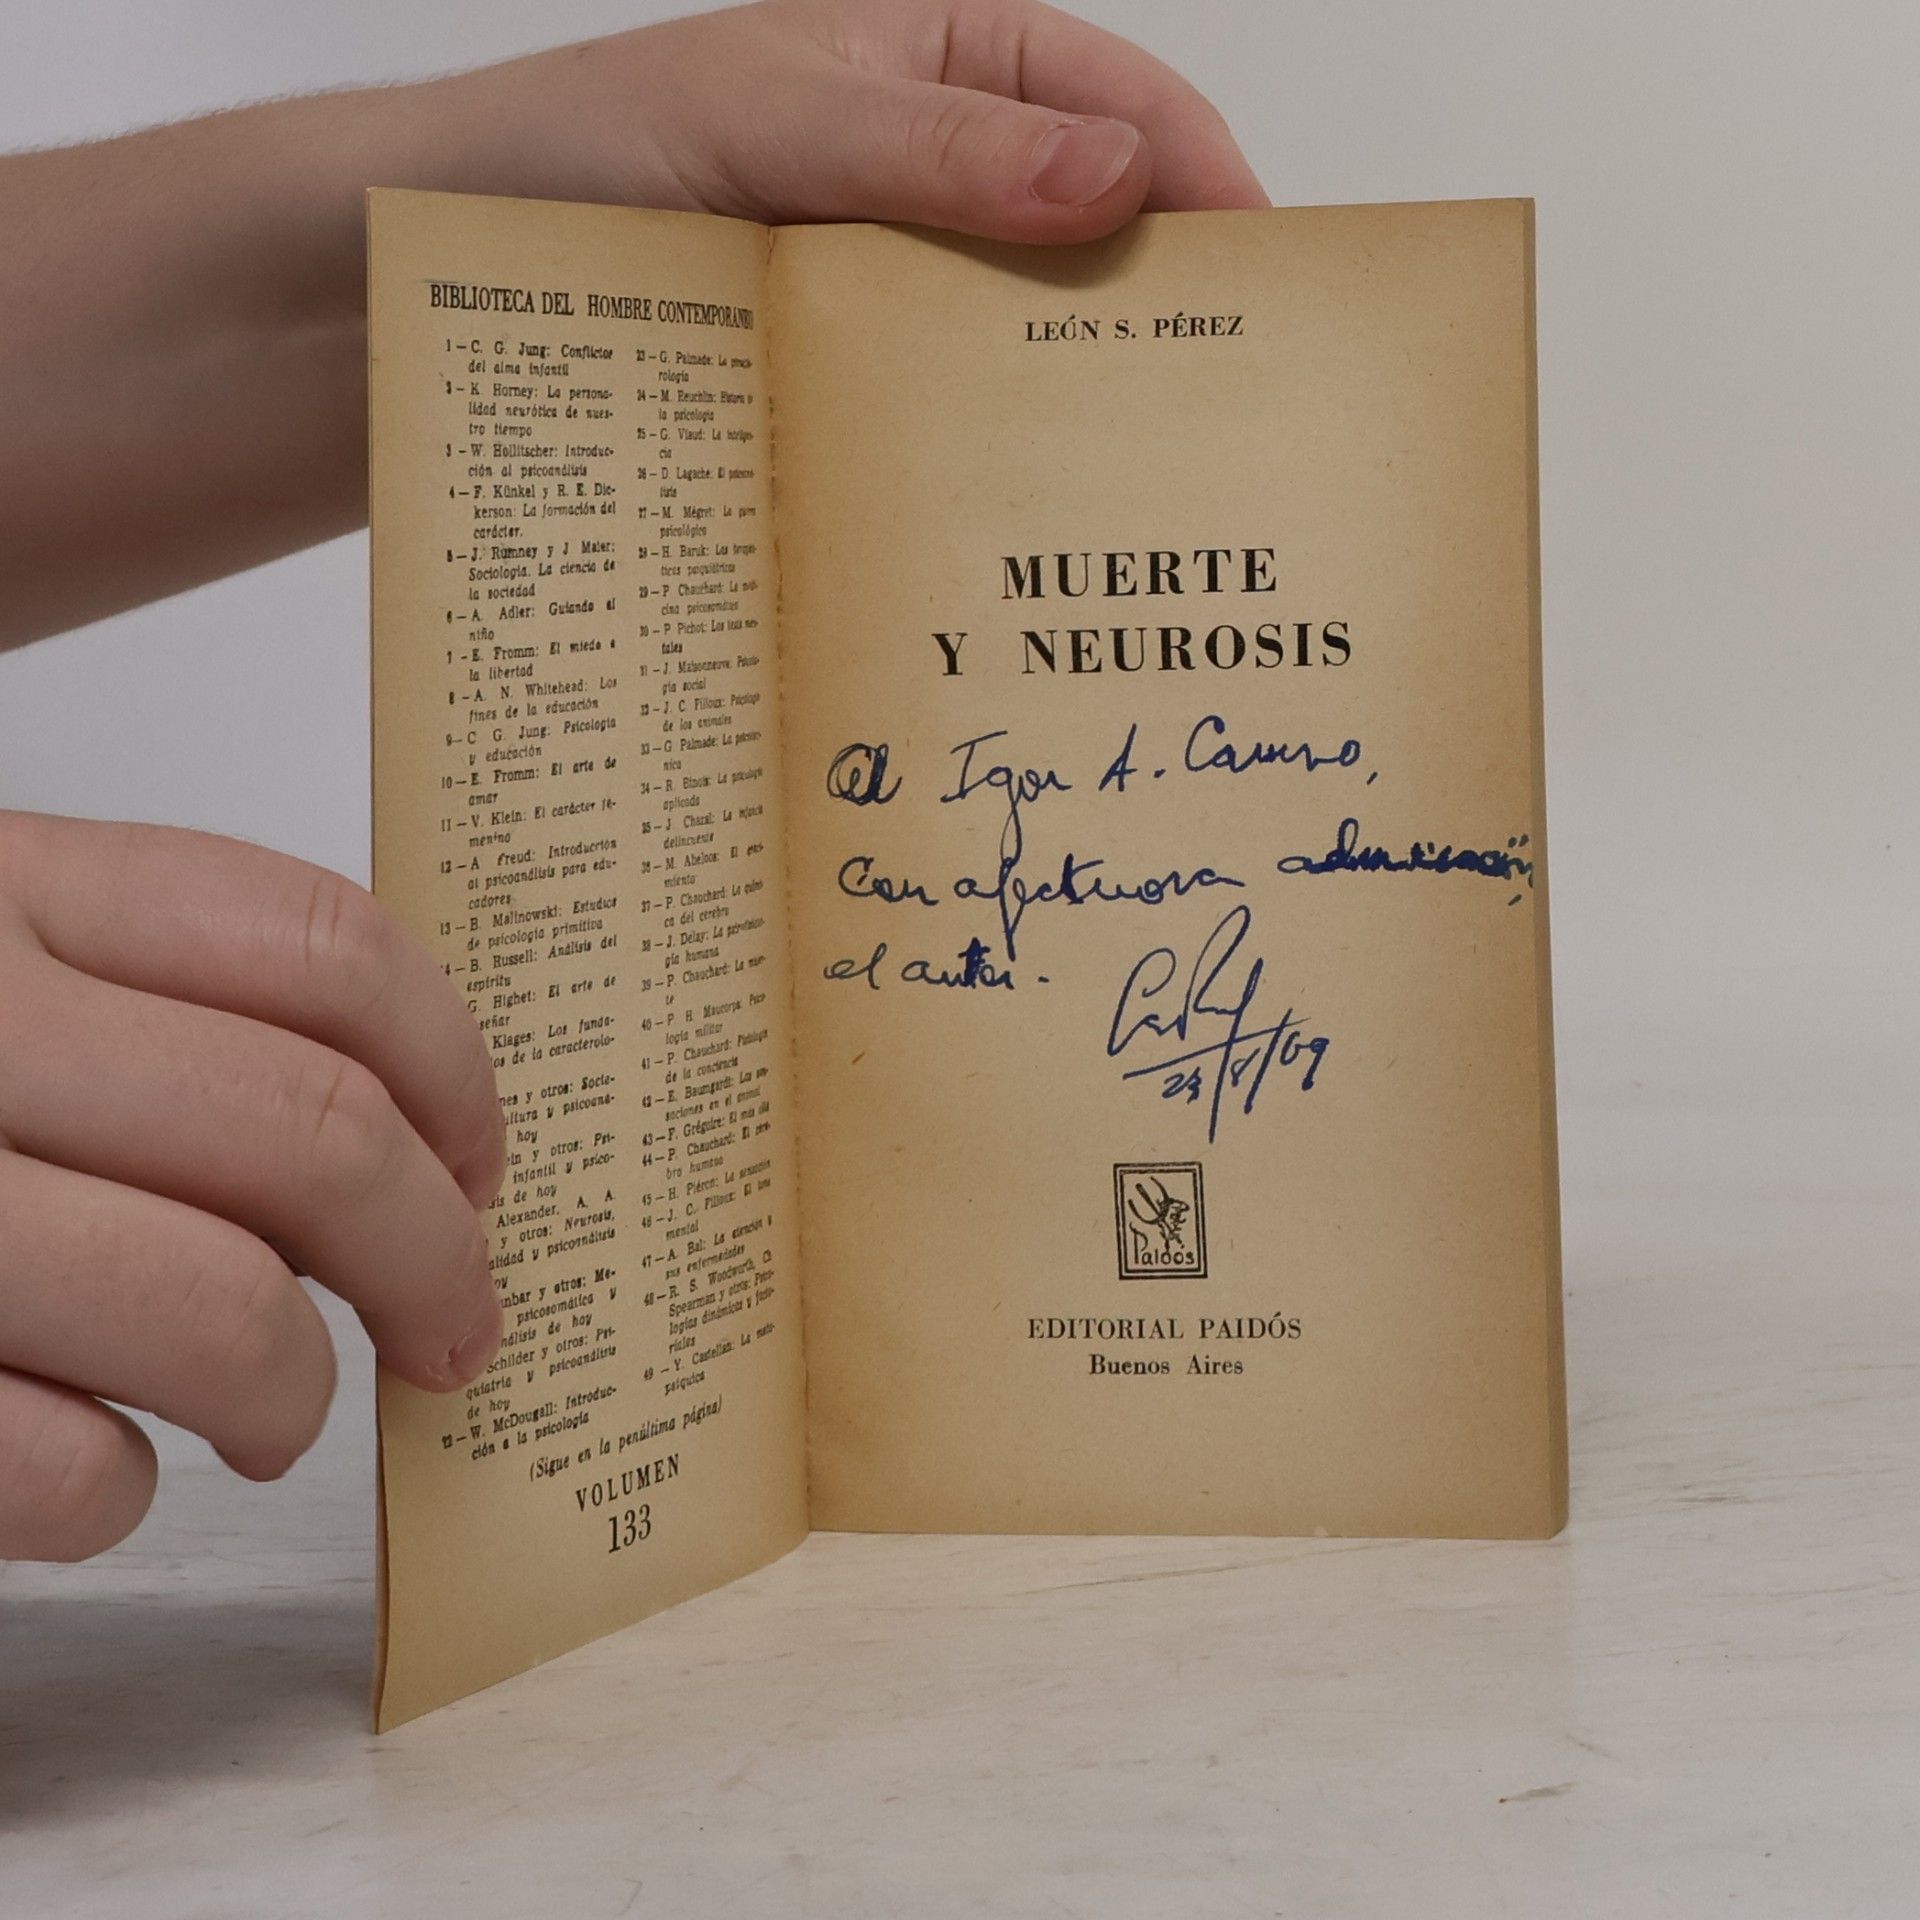 BIBLIOTECA DEL HOMBRE CONTEMPORANEO
1 — C. G. Jung: Conflictos
del alma infantil
2 — K. Horney: La persona-
lidad neurótica de nues-
tro tiempo
3 — W. Hollitscher: Introduc-
ción al psicoanálisis
4 — F. Künkel y R. E. Dic-
kerson: La formación del
carácter.
5 — J. Rumney y J Maier:
Sociología. La ciencia de
la sociedad
6 — A. Adler: Guiando al
niño
7 — E. Fromm: El miedo a
la libertad
8 — A. N. Whitehead: Los
fines de la educación
9 — C G. Jung: Psicología
y educación
10 — E. Fromm: El arte de
amar
11 — V. Klein: El carácter fe-
menino
12 — A Freud: Introducción
al psicoanálisis para edu-
cadores
13 — B. Malinowski: Estudios
de psicología primitiva
14 — B. Russell: Análisis del
espíritu
G. Highet: El arte de
señar
Klages: Los funda-
os de la caracterolo-
nes y otros: Socie-
ltura y psicoaná-
hoy
ein y otros: Psi-
infantil y psico-
sis de hoy
Alexander, A. A.
y otros: Neurosis,
alidad y psicoanálisis
oy
nbar y otros: Me-
psicosomática y
nálisis de hoy
Schilder y otros: Psi-
quiatría y psicoanálisis
de hoy
22 — W. McDougall: Introduc-
ción a la psicología
23 — G. Palmade: La
rología
24 — M. Reuchlin: Historia de
la psicología
25 — G. Viaud: La inteligen-
cia
26 — D. Lagache: El psicoaná-
lisis
27 — M. Mégret: La guerra
psicológica
28 — H. Baruk: Las terapéu-
ticas psiquiátricas
29 — P Chauchard: La medi-
cina psicosomática
30 — P Pichot: Los tests men-
tales
31 — J. Maisonneuve: Psicolo-
gía social
32 — J. C. Filloux: Psicología
de los animales
33 — G Palmade: La psicotéc-
nica
34 — R. Binois: La psicología
aplicada
35 — J Chazal: La infancia
delincuente
36 — M. Abeloos: El creci-
miento
37 — P. Chauchard: La quími-
ca del cerebro
38 — J. Delay: La psicofisiolo-
gía humana
39 — P. Chauchard: La muer-
te
40 — P H. Maucorps: Psico-
logía militar
41 — P. Chauchard: Fisiología
de la conciencia
42 — E. Baumgardt: Las sen-
saciones en el animal
43 — F. Grégoire: El más allá
44 — P. Chauchard: El cere-
bro humano
45 — H. Piéron: La sensación
46 — J. C. Filloux: El tono
mental
47 — A. Bal: La atención y
sus enfermedades
48 — R. S. Woodworth, Ch
Spearman y otros: Psico-
logías dinámicas y facto-
riales
49 — Y. Castellan: La meta-
psíquica
(Sigue en la penúltima página)
VOLUMEN
133
LEÓN S. PÉREZ
MUERTE
Y NEUROSIS
Igor A. Caruso,
Con afectuosa admiración,
el autor.
23/8/69
Paidós
EDITORIAL PAIDÓS
Buenos Aires